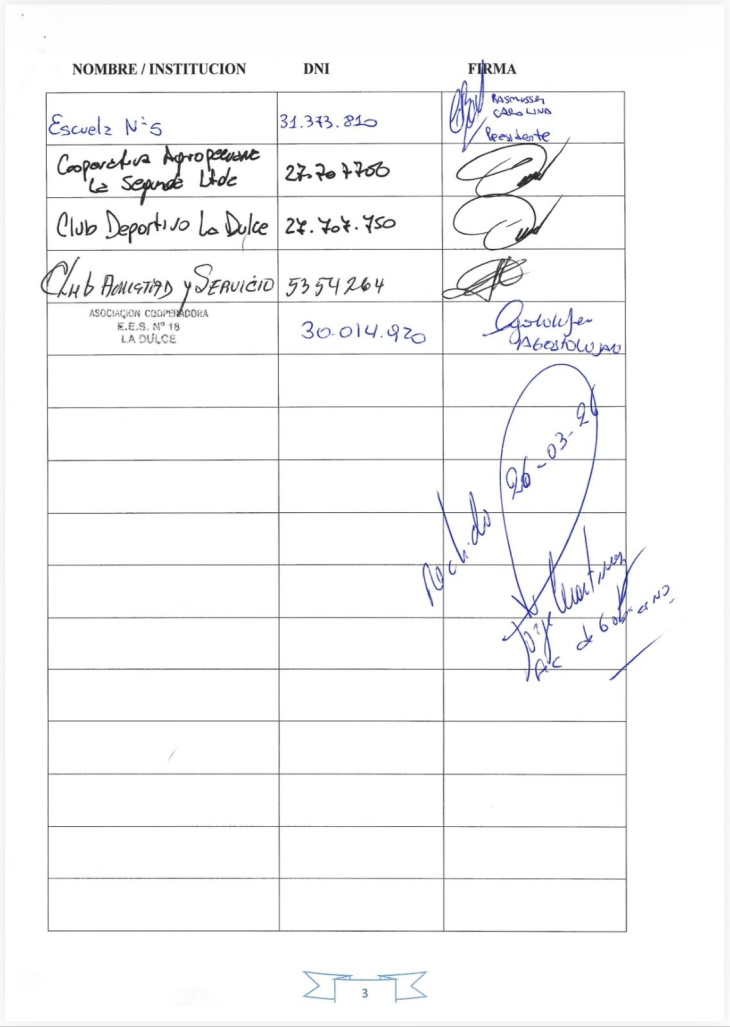 NOMBRE / INSTITUCION DNI FIRMA
Escuela N°5 31.373.810
RASMUSSEN
CAROLINA
Presidente
Cooperativa Agropecuaria
La Segunda Ltda
Club Deportivo La Dulce 27.707.750
Club Amistad y Servicio 5354264
ASOCIACION COOPERADORA
E.E.S. Nº 18
LA DULCE
30.014.920
Recibido 26-03-
Jorge Martinez
de Gobierno
3